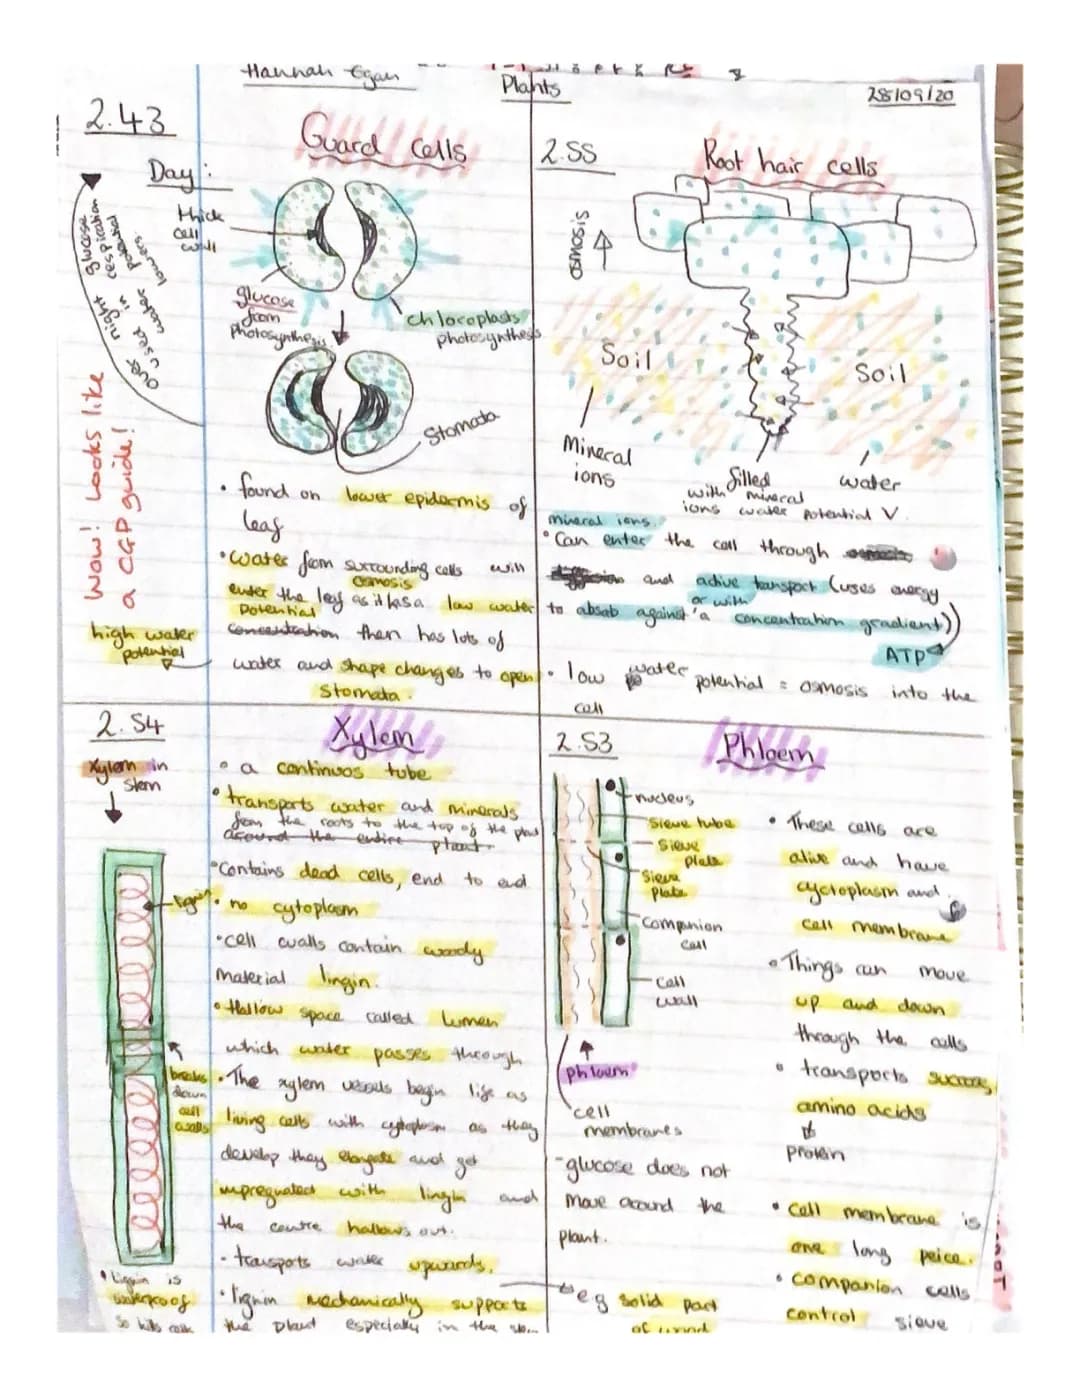 Hannah Egan
Plants
28/09/20
2.43
Guard cells
Day:
thick
cell
wall
glucose
from
photosynthesis
chloroplasts
photosynthesis
Stomata
over night glucose
used in respiration
water potential
lowers.
Wow! Looks like
a CGP guide!
• found on lower epidermis of
leaf
• water from surrounding cells will
osmosis
enter the leaf as it has a low water
potential
concentration then has lots of
high water
potential
water and shape changes to open
stomata.
2.55
Root hair cells
osmosis
Soil
Soil
Mineral
ions
filled
with mineral
ions water potential V.
water
mineral ions.
• Can enter the cell through
and active transport (uses energy
or with
to absab against a concentration gradient))
ATP
• low water potential = osmosis into the
cell
2.54
Xylem
Xylem in
stem
lignin
breaks
down
cell
walls
• Liggin is
waterproof
so kills cells
• a continuos tube
• transports water and minerals
from the roots to the top of the plant
around the entire plant
• Contains dead cells, end to end
• no cytoplasm
• cell walls contain woody
material lingin.
• Hallow space called lumen
which water passes through
• The xylem vessels begin life as
living cells with cytoplasm as they
develop they elongate and get
impregnated with lingin and
the centre hallows out.
- transports water upwards.
• lignin mechanically supports
the plant especially in the stem
2.53
Phloem
nucleus
Sieve tube
Sieve
plate
Sieve
plate
Companion
cell
cell
wall
phloem
cell
membranes
- glucose does not
move around the
plant.
• These cells are
alive and have
cyctoplasm and
cell membrane
• Things can move
up and down
through the cells
• transports sucrose,
amino acids
protein
• cell membrane is
one long peice.
• companion cells
control sieve
eg solid part
of wood